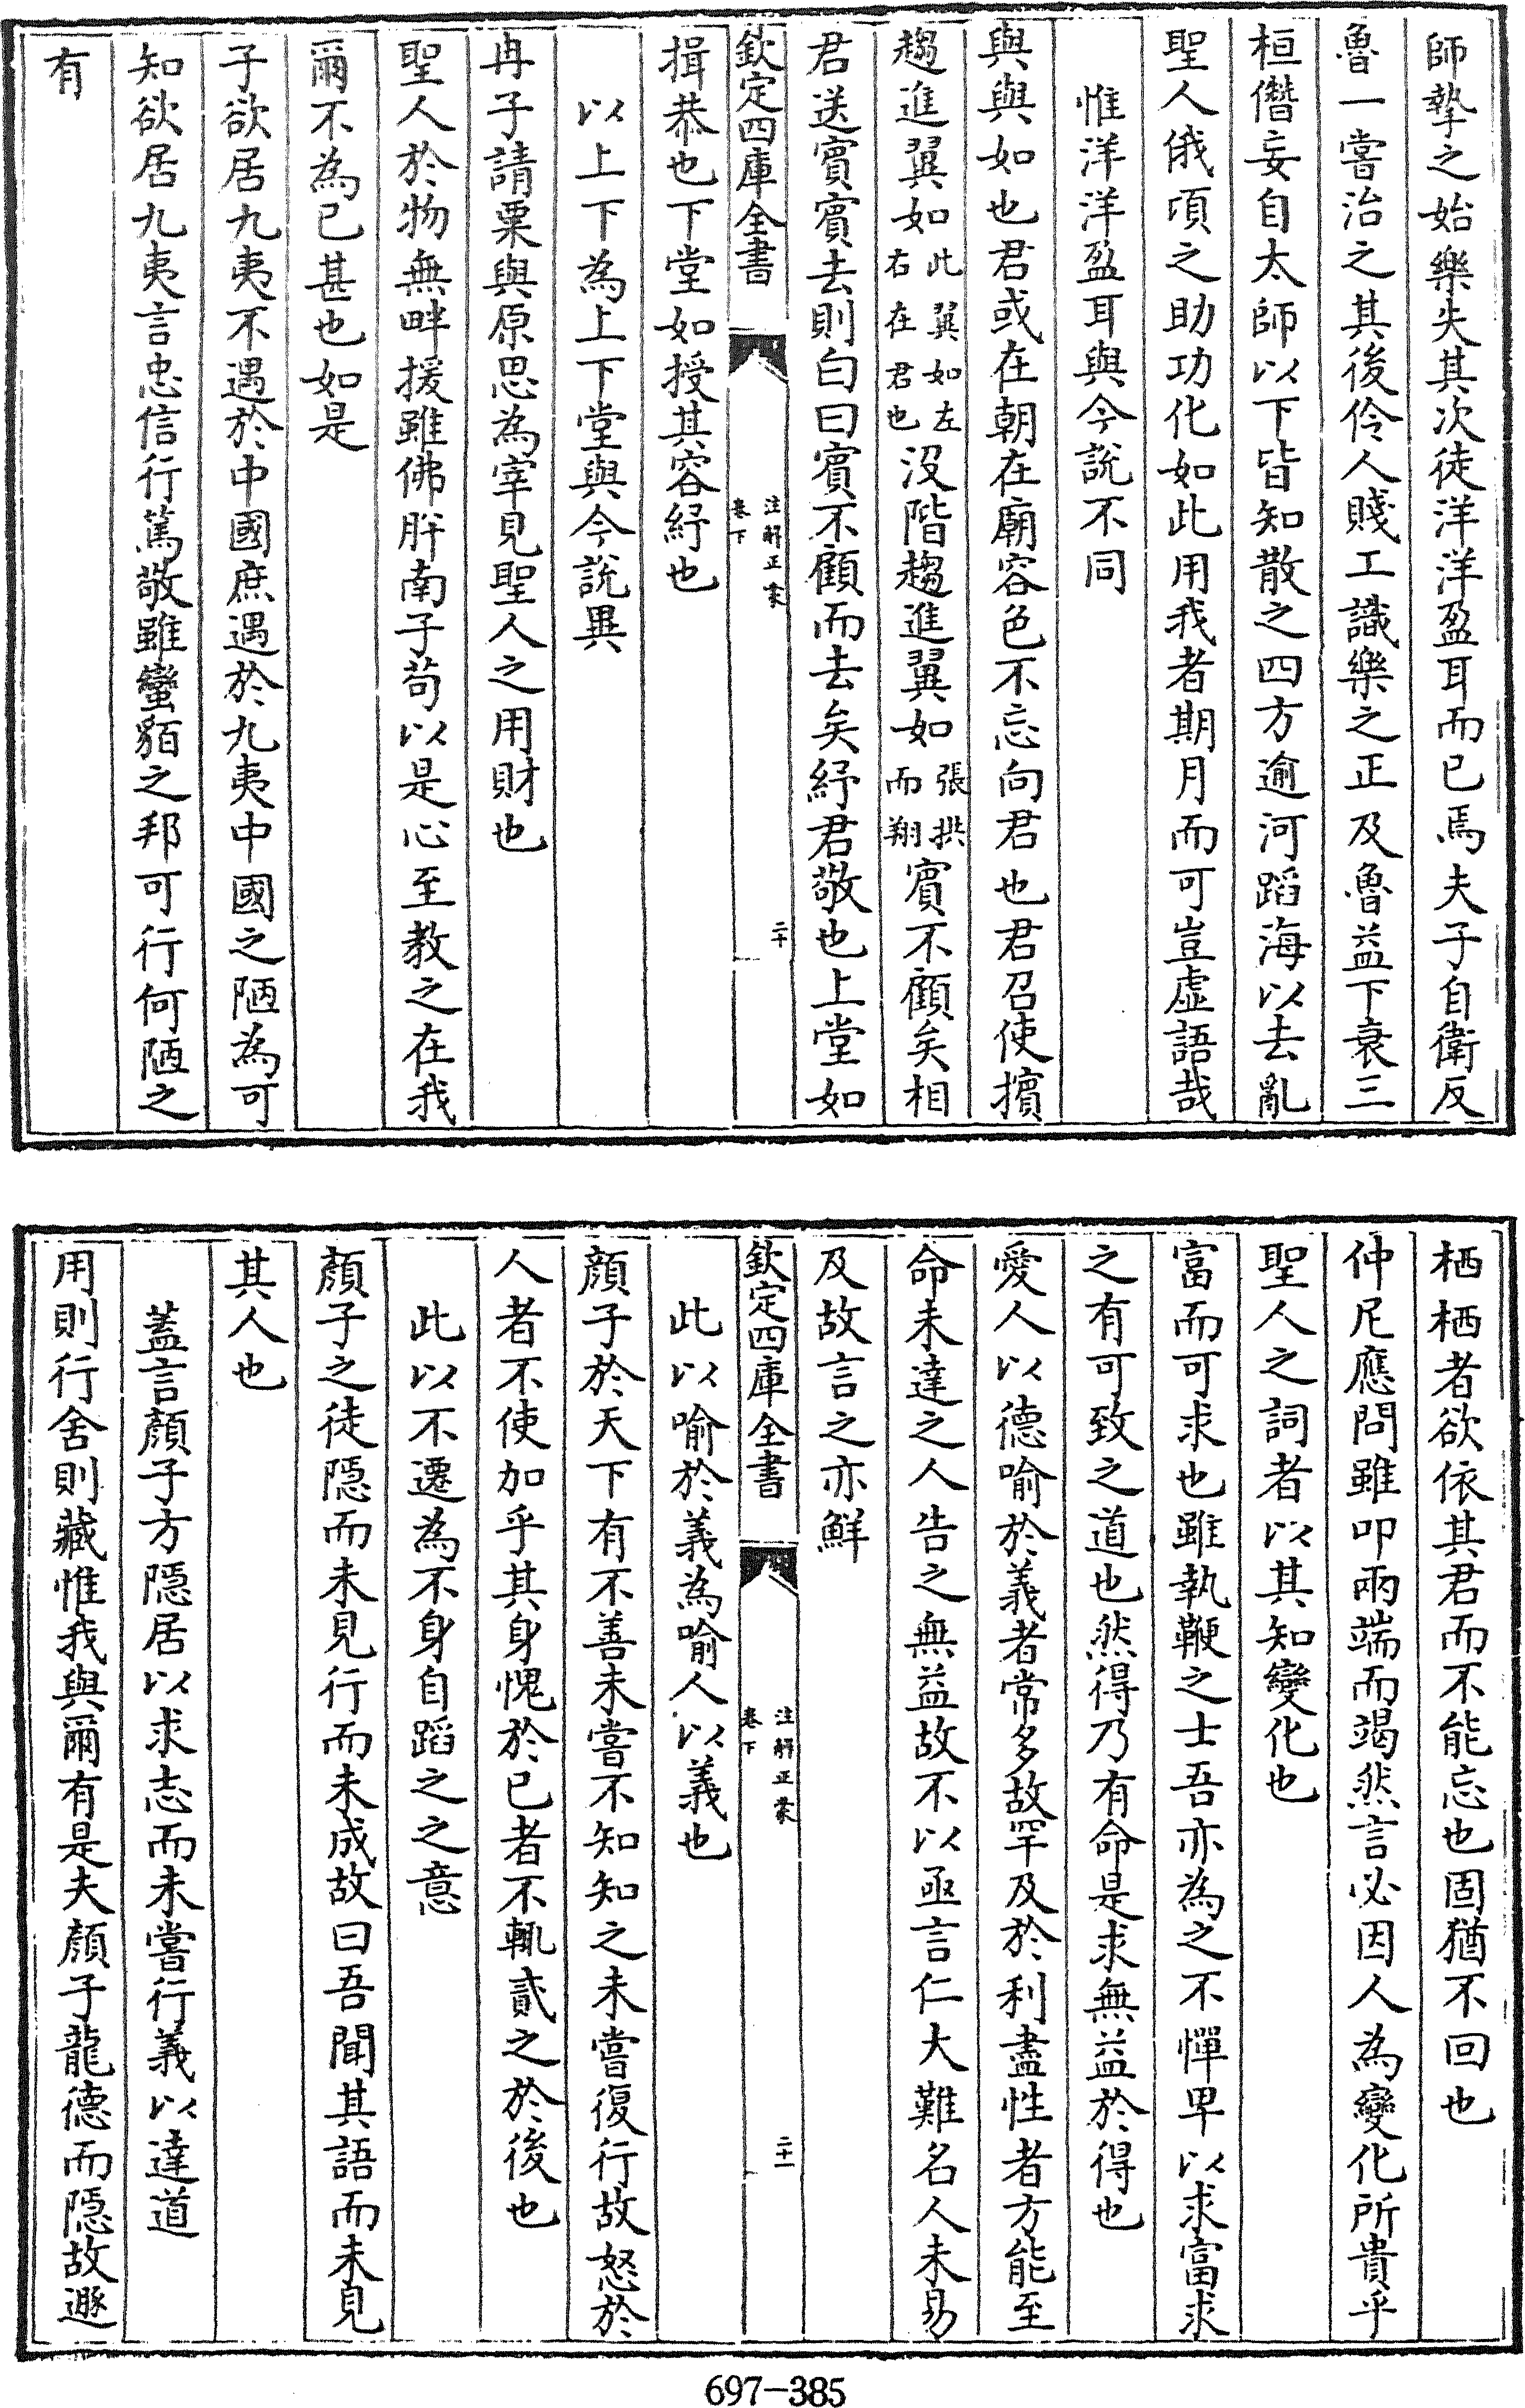 師摯之始樂失其次徒洋洋盈耳而已焉夫子自衛反
魯一嘗治之其後伶人賤工識樂之正及魯益下衰三
桓僭妄自太師以下皆知散之四方逾河蹈海以去亂
聖人俄頃之助功化如此用我者期月而可豈虛語哉
惟洋洋盈耳與今說不同
與與如也君或在朝在廟容色不忘向君也君召使擯
趨進翼如此翼如左右在君也沒階趨進翼如張拱而翔賓不顧矣相
君送賓賓去則白曰賓不顧而去矣紓君敬也上堂如
欽定四庫全書 注解正蒙 卷下 二十
揖恭也下堂如授其容紓也
以上下為上下堂與今說異
冉子請粟與原思為宰見聖人之用財也
聖人於物無畔援雖佛肸南子苟以是心至教之在我
爾不為已甚也如是
子欲居九夷不遇於中國庶遇於九夷中國之陋為可
知欲居九夷言忠信行篤敬雖蠻貊之邦可行何陋之
有
栖栖者欲依其君而不能忘也固猶不回也
仲尼應問雖叩兩端而竭然言必因人為變化所貴乎
聖人之詞者以其知變化也
富而可求也雖執鞭之士吾亦為之不憚卑以求富求
之有可致之道也然得乃有命是求無益於得也
愛人以德喻於義者常多故罕及於利盡性者方能至
命未達之人告之無益故不以亟言仁大難名人未易
及故言之亦鮮
欽定四庫全書 注解正蒙 卷下 二十一
此以喻於義為喻人以義也
顏子於天下有不善未嘗不知知之未嘗復行故怒於
人者不使加乎其身愧於已者不輒貳之於後也
此以不遷為不身自蹈之之意
顏子之徒隱而未見行而未成故曰吾聞其語而未見
其人也
蓋言顏子方隱居以求志而未嘗行義以達道
用則行舍則藏惟我與爾有是夫顏子龍德而隱故遯
697-385